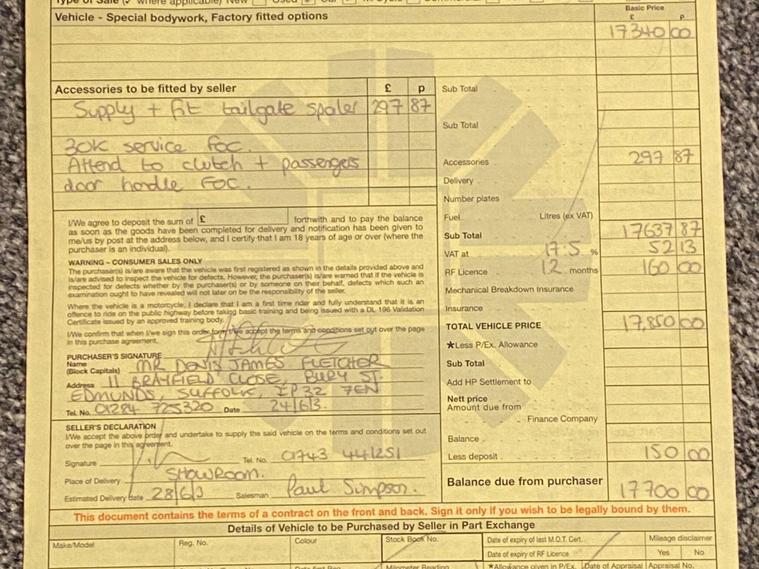 Type of Sale (✓ where applicable) New Used
Vehicle - Special bodywork, Factory fitted options
Basic Price
£ p
17340 00
Accessories to be fitted by seller £ p
Supply + fit tailgate spoiler 297 87
30K service foc.
Attend to clutch + passengers
door handle FOC.
Sub Total
Sub Total
Accessories 297 87
Delivery
Number plates
Fuel Litres (ex VAT)
Sub Total 17637 87
VAT at 17.5 % 52 13
RF Licence 12 months 160 00
Mechanical Breakdown Insurance
Insurance
TOTAL VEHICLE PRICE 17,850 00
★Less P/Ex. Allowance
Sub Total
Add HP Settlement to
Nett price
Amount due from
Finance Company
Balance
Less deposit 150 00
Balance due from purchaser 17700 00
I/We agree to deposit the sum of £ forthwith and to pay the balance
as soon as the goods have been completed for delivery and notification has been given to
me/us by post at the address below, and I certify that I am 18 years of age or over (where the
purchaser is an individual).
WARNING – CONSUMER SALES ONLY
The purchaser(s) is/are aware that the vehicle was first registered as shown in the details provided above and
is/are advised to inspect the vehicle for defects. However, the purchaser(s) is/are warned that if the vehicle is
inspected for defects whether by the purchaser(s) or by someone on their behalf, defects which such an
examination ought to have revealed will not later on be the responsibility of the seller.
Where the vehicle is a motorcycle, I declare that I am a first time rider and fully understand that it is an
offence to ride on the public highway before taking basic training and being issued with a DL 196 Validation
Certificate issued by an approved training body.
I/We confirm that when I/we sign this order form I/we accept the terms and conditions set out over the page
in this purchase agreement.
PURCHASER'S SIGNATURE
Name MR DENIS JAMES FLETCHER
(Block Capitals)
Address 11 BRAYFIELD CLOSE, BURY ST.
EDMUNDS, SUFFOLK, IP32 7EN
Tel. No. 01284 725320 Date 24/6/3.
SELLER'S DECLARATION
I/We accept the above order and undertake to supply the said vehicle on the terms and conditions set out
over the page in this agreement.
Signature Tel. No. 01743 441251
Place of Delivery SHOWROOM.
Estimated Delivery date 28/6/3 Salesman Paul Simpson.
This document contains the terms of a contract on the front and back. Sign it only if you wish to be legally bound by them.
Details of Vehicle to be Purchased by Seller in Part Exchange
Make/Model Reg. No. Colour Stock Book No. Date of expiry of last M.O.T. Cert. Mileage disclaimer
Date of expiry of RF Licence Yes No
★Allowance given in P/Ex. Date of Appraisal Appraisal No.